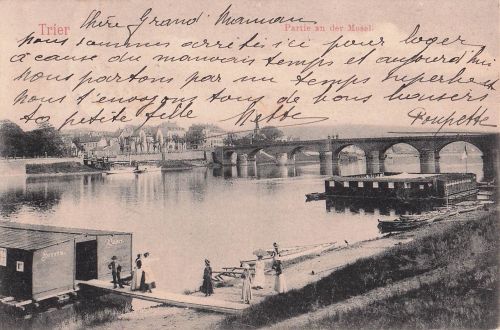 Trier
Partie an der Mosel.
Chère Grand Maman
nous sommes arrêtés ici pour loger
à cause du mauvais temps et aujourd'hui
nous partons par un temps superbe
nous t'envoyons tous de bons baisers
ta petite fille Poupette
Herren